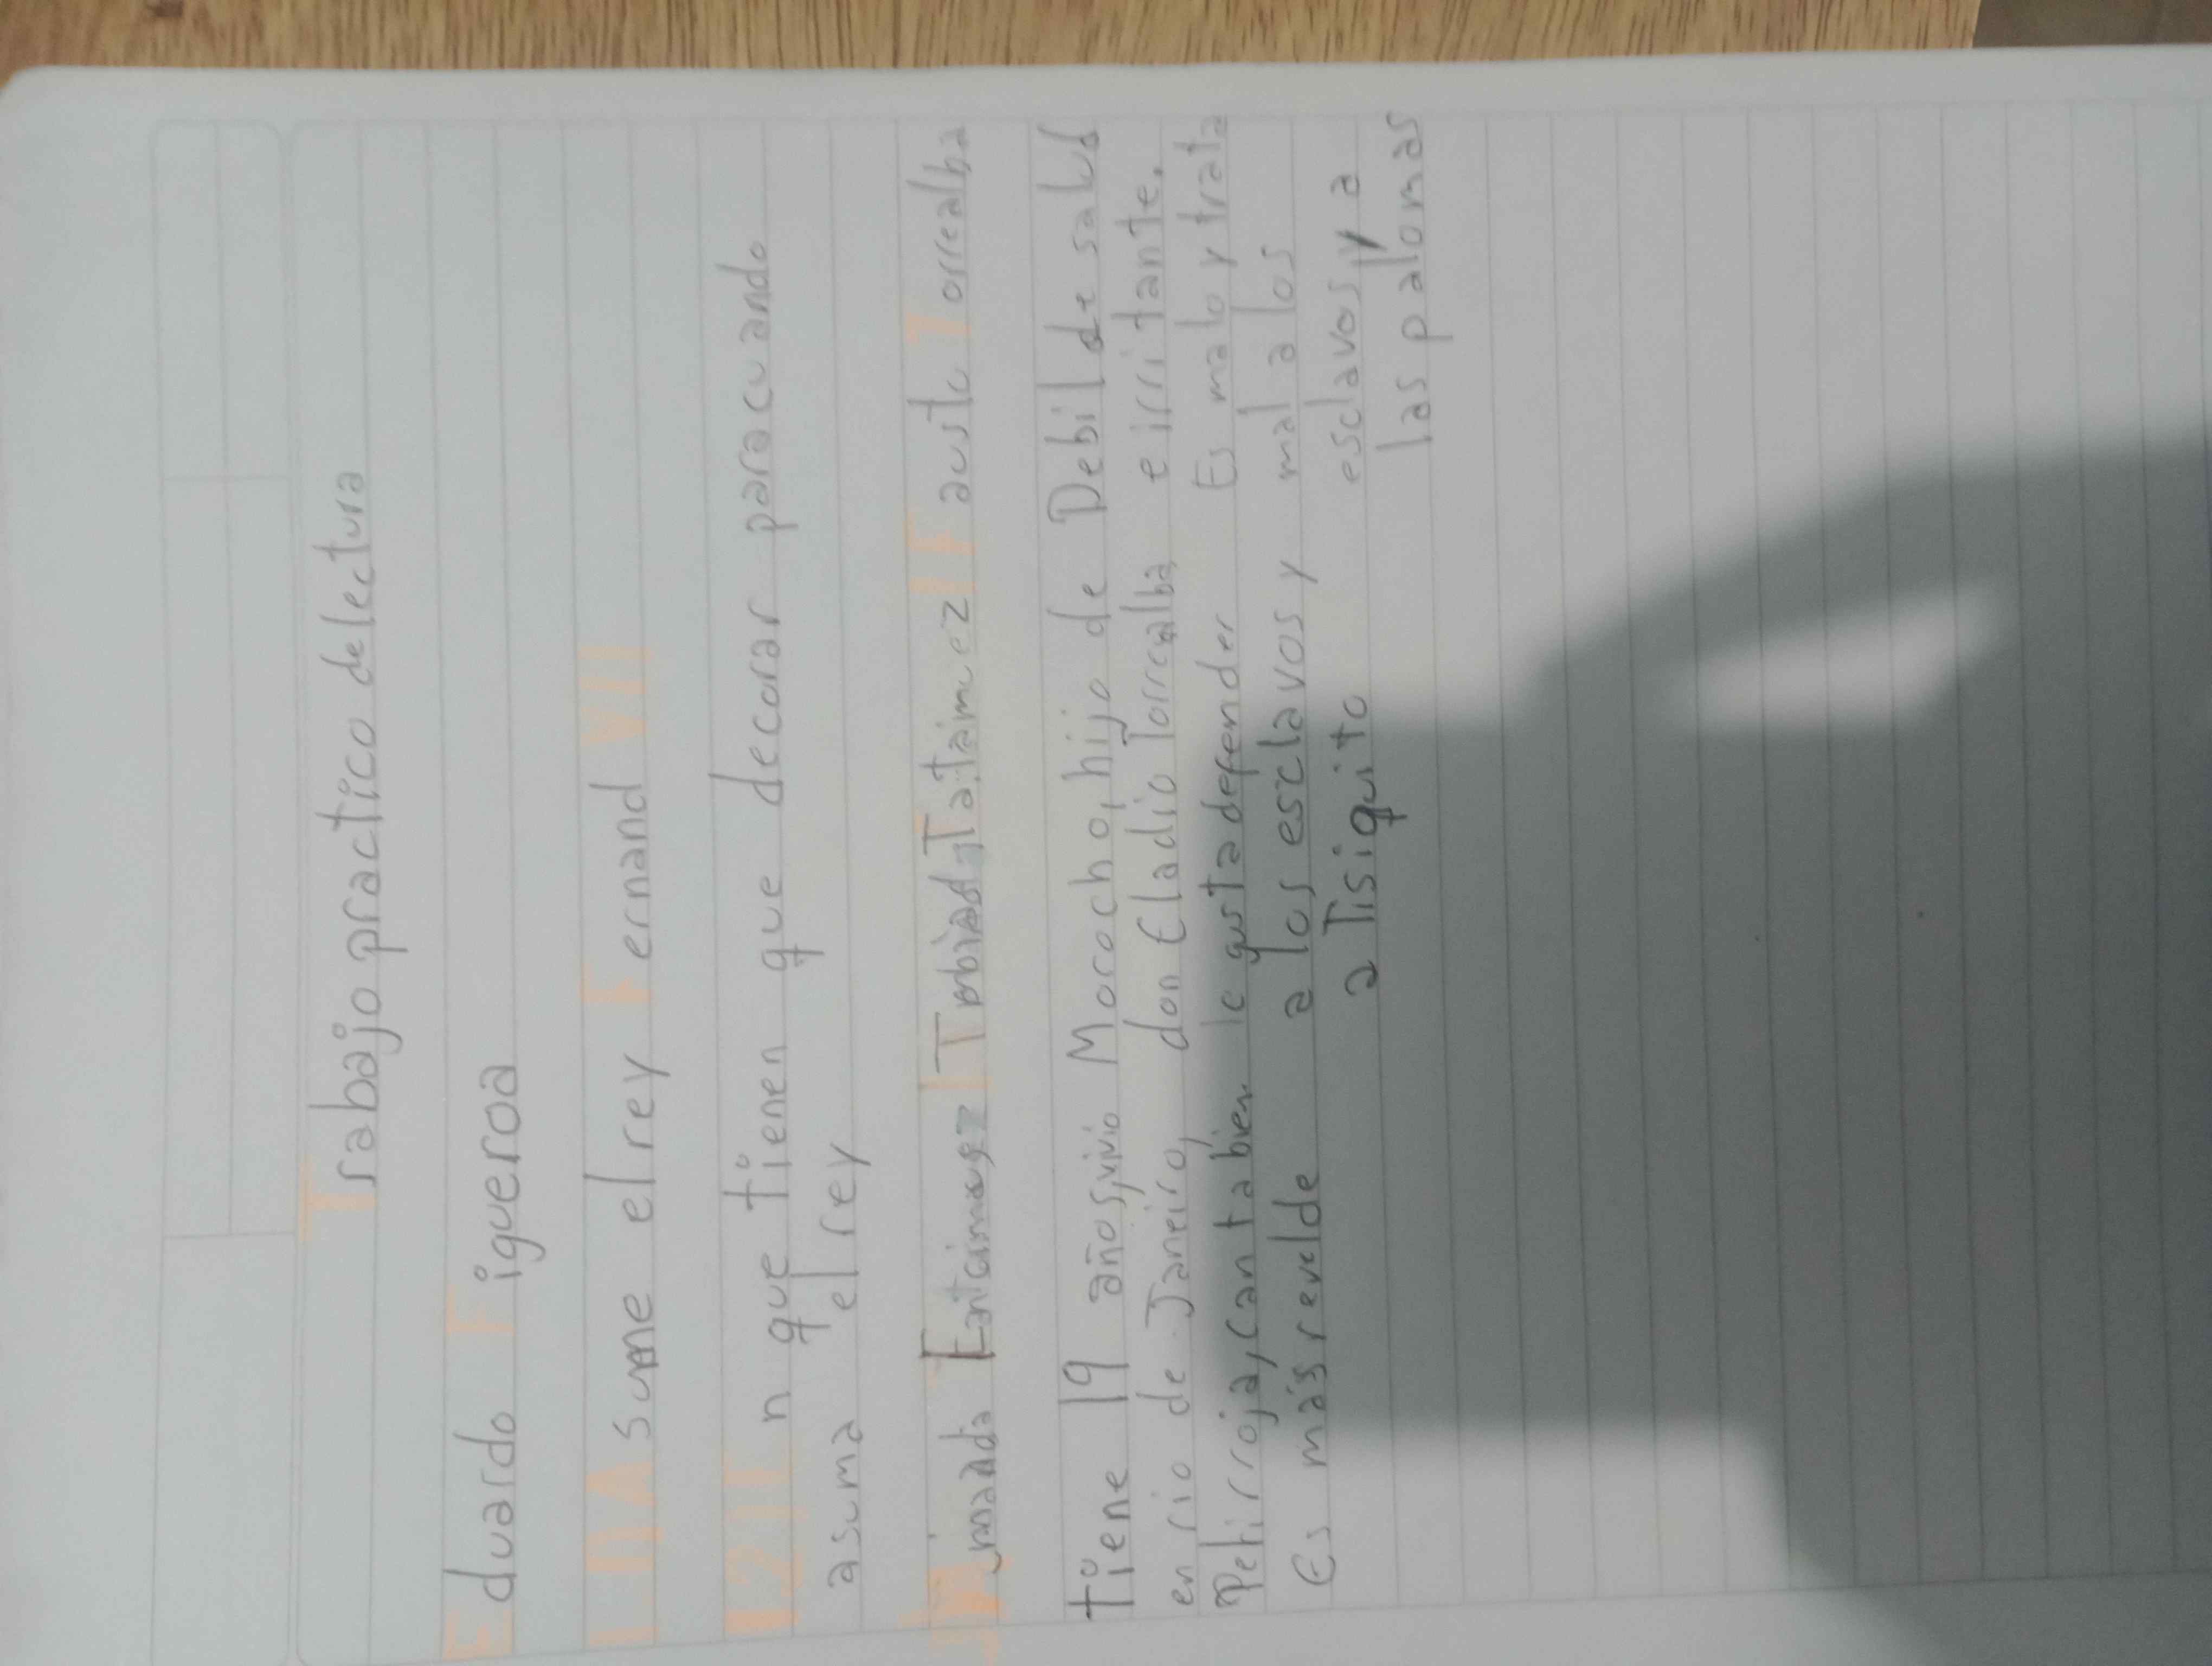 Trabajo practico de lectura
Eduardo Figueroa
1_A Asume el rey Fernand VII
2_En que tienen que decorar para cuando
asuma el rey
Tatamuez Fausto Torrealba
tiene 19 años, vivio Morocho, hijo de Debil de salud
en rio de Janeiro, don Eladio Torrealba e irritante.
Petirroja, Cantabien le gusta defender Es malo y trata
Es más revelde a los esclavos y mal a los
a Tisiquito esclavos, y a
las palomas